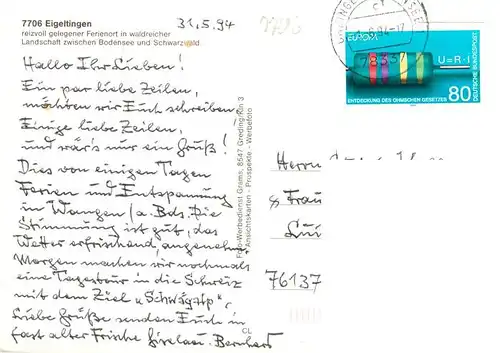 7706 Eigeltingen
reizvoll gelegener Ferienort in waldreicher
Landschaft zwischen Bodensee und Schwarzwald
31.5.94
Hallo Ihr Lieben!
Ein par liebe Zeilen,
möchten wir Euch schreiben,
Einige liebe Zeilen,
und wär's nur ein Gruß!
Dies von einigen Tagen
Ferien und Entspannung
in Wangen / a. Bds. Die
Stimmung ist gut, das
Wetter erfrischend angenehm.
Morgen machen wir nochmals
eine Tagestour in die Schweiz
mit dem Ziel "Schwägalp",
Liebe Grüße senden Euch in
fast alter Frische Giselau. Bernhard
Foto-Werbedienst Grams, 8547 Greding/Kin 3
Ansichtskarten - Prospekte - Werbefoto
CL
EUROPA
U=R·I
ENTDECKUNG DES OHMSCHEN GESETZES
80
DEUTSCHE BUNDESPOST
Herrn
& Frau
76137